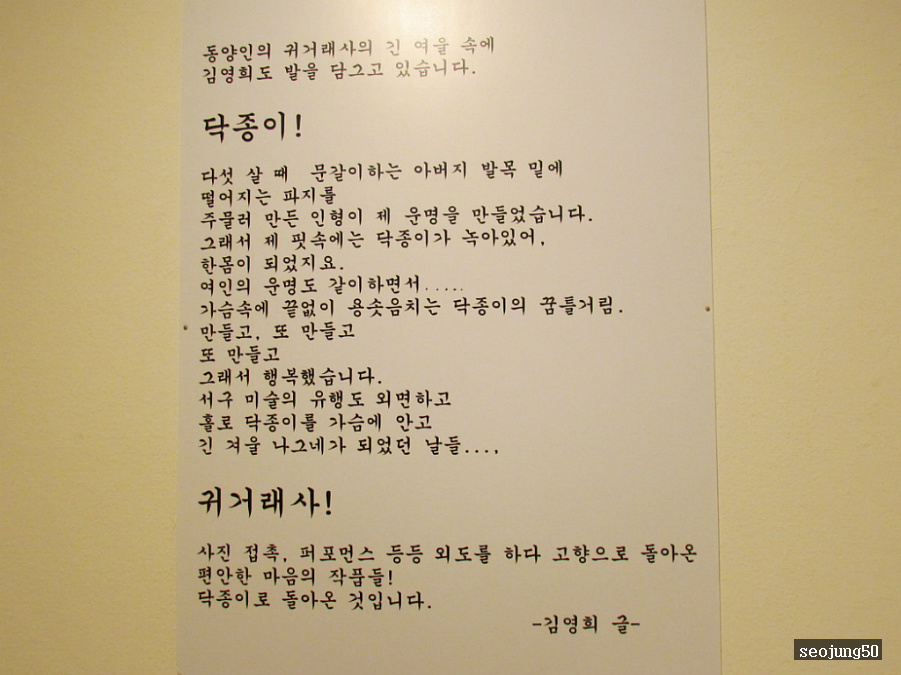 동양인의 귀거래사의 긴 여울 속에
김영희도 발을 담그고 있습니다.
닥종이!
다섯 살 때 문갈이하는 아버지 발목 밑에
떨어지는 파지를
주물러 만든 인형이 제 운명을 만들었습니다.
그래서 제 핏속에는 닥종이가 녹아있어,
한몸이 되었지요.
여인의 운명도 같이하면서.....
가슴속에 끝없이 용솟음치는 닥종이의 꿈틀거림.
만들고, 또 만들고
또 만들고
그래서 행복했습니다.
서구 미술의 유행도 외면하고
홀로 닥종이를 가슴에 안고
긴 겨울 나그네가 되었던 날들...,
귀거래사!
사진 접촉, 퍼포먼스 등등 외도를 하다 고향으로 돌아온
편안한 마음의 작품들!
닥종이로 돌아온 것입니다.
-김영희 글-
seojung50